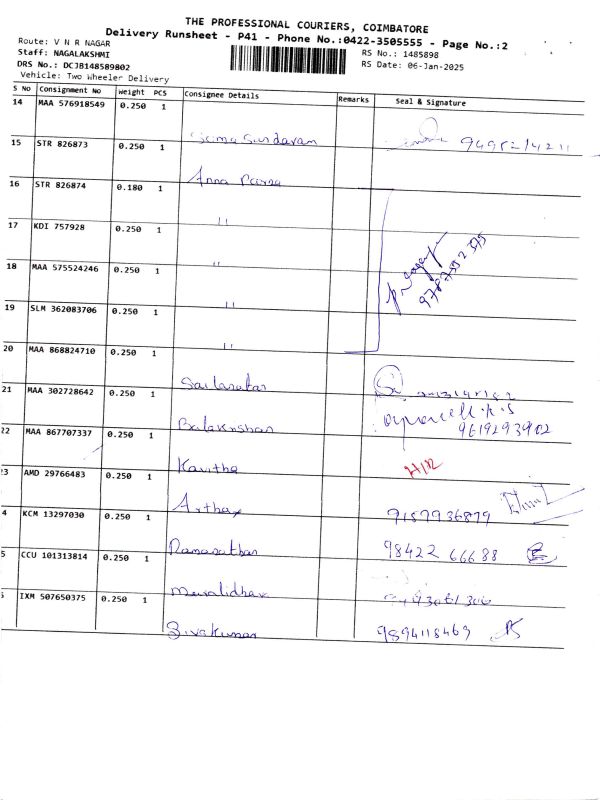 THE PROFESSIONAL COURIERS, COIMBATORE
Delivery Runsheet - P41 - Phone No.:0422-3505555 - Page No.:2
Route: V N R NAGAR
RS No.: 1485898
Staff: NAGALAKSHMI
RS Date: 06-Jan-2025
DRS No.: DCJB148589802
Vehicle: Two Wheeler Delivery
S No Consignment No Weight PCS Consignee Details Remarks Seal & Signature
14 MAA 576918549 0.250 1
15 STR 826873 0.250 1
Anna
16 STR 826874 0.180 1
"
17 KDI 757928 0.250 1
"
18 MAA 575524246 0.250 1
9787592375
"
19 SLM 362083706 0.250 1
"
20 MAA 868824710 0.250 1
21 MAA 302728642 0.250 1
Balakrishnan 9619293902
22 MAA 867707337 0.250 1
Kavitha
23 AMD 29766483 0.250 1
9187936879
4 KCM 13297030 0.250 1
98422 66688
5 CCU 101313814 0.250 1
Muralidhar
IXM 507650375 0.250 1
Sivakumar 9894118469